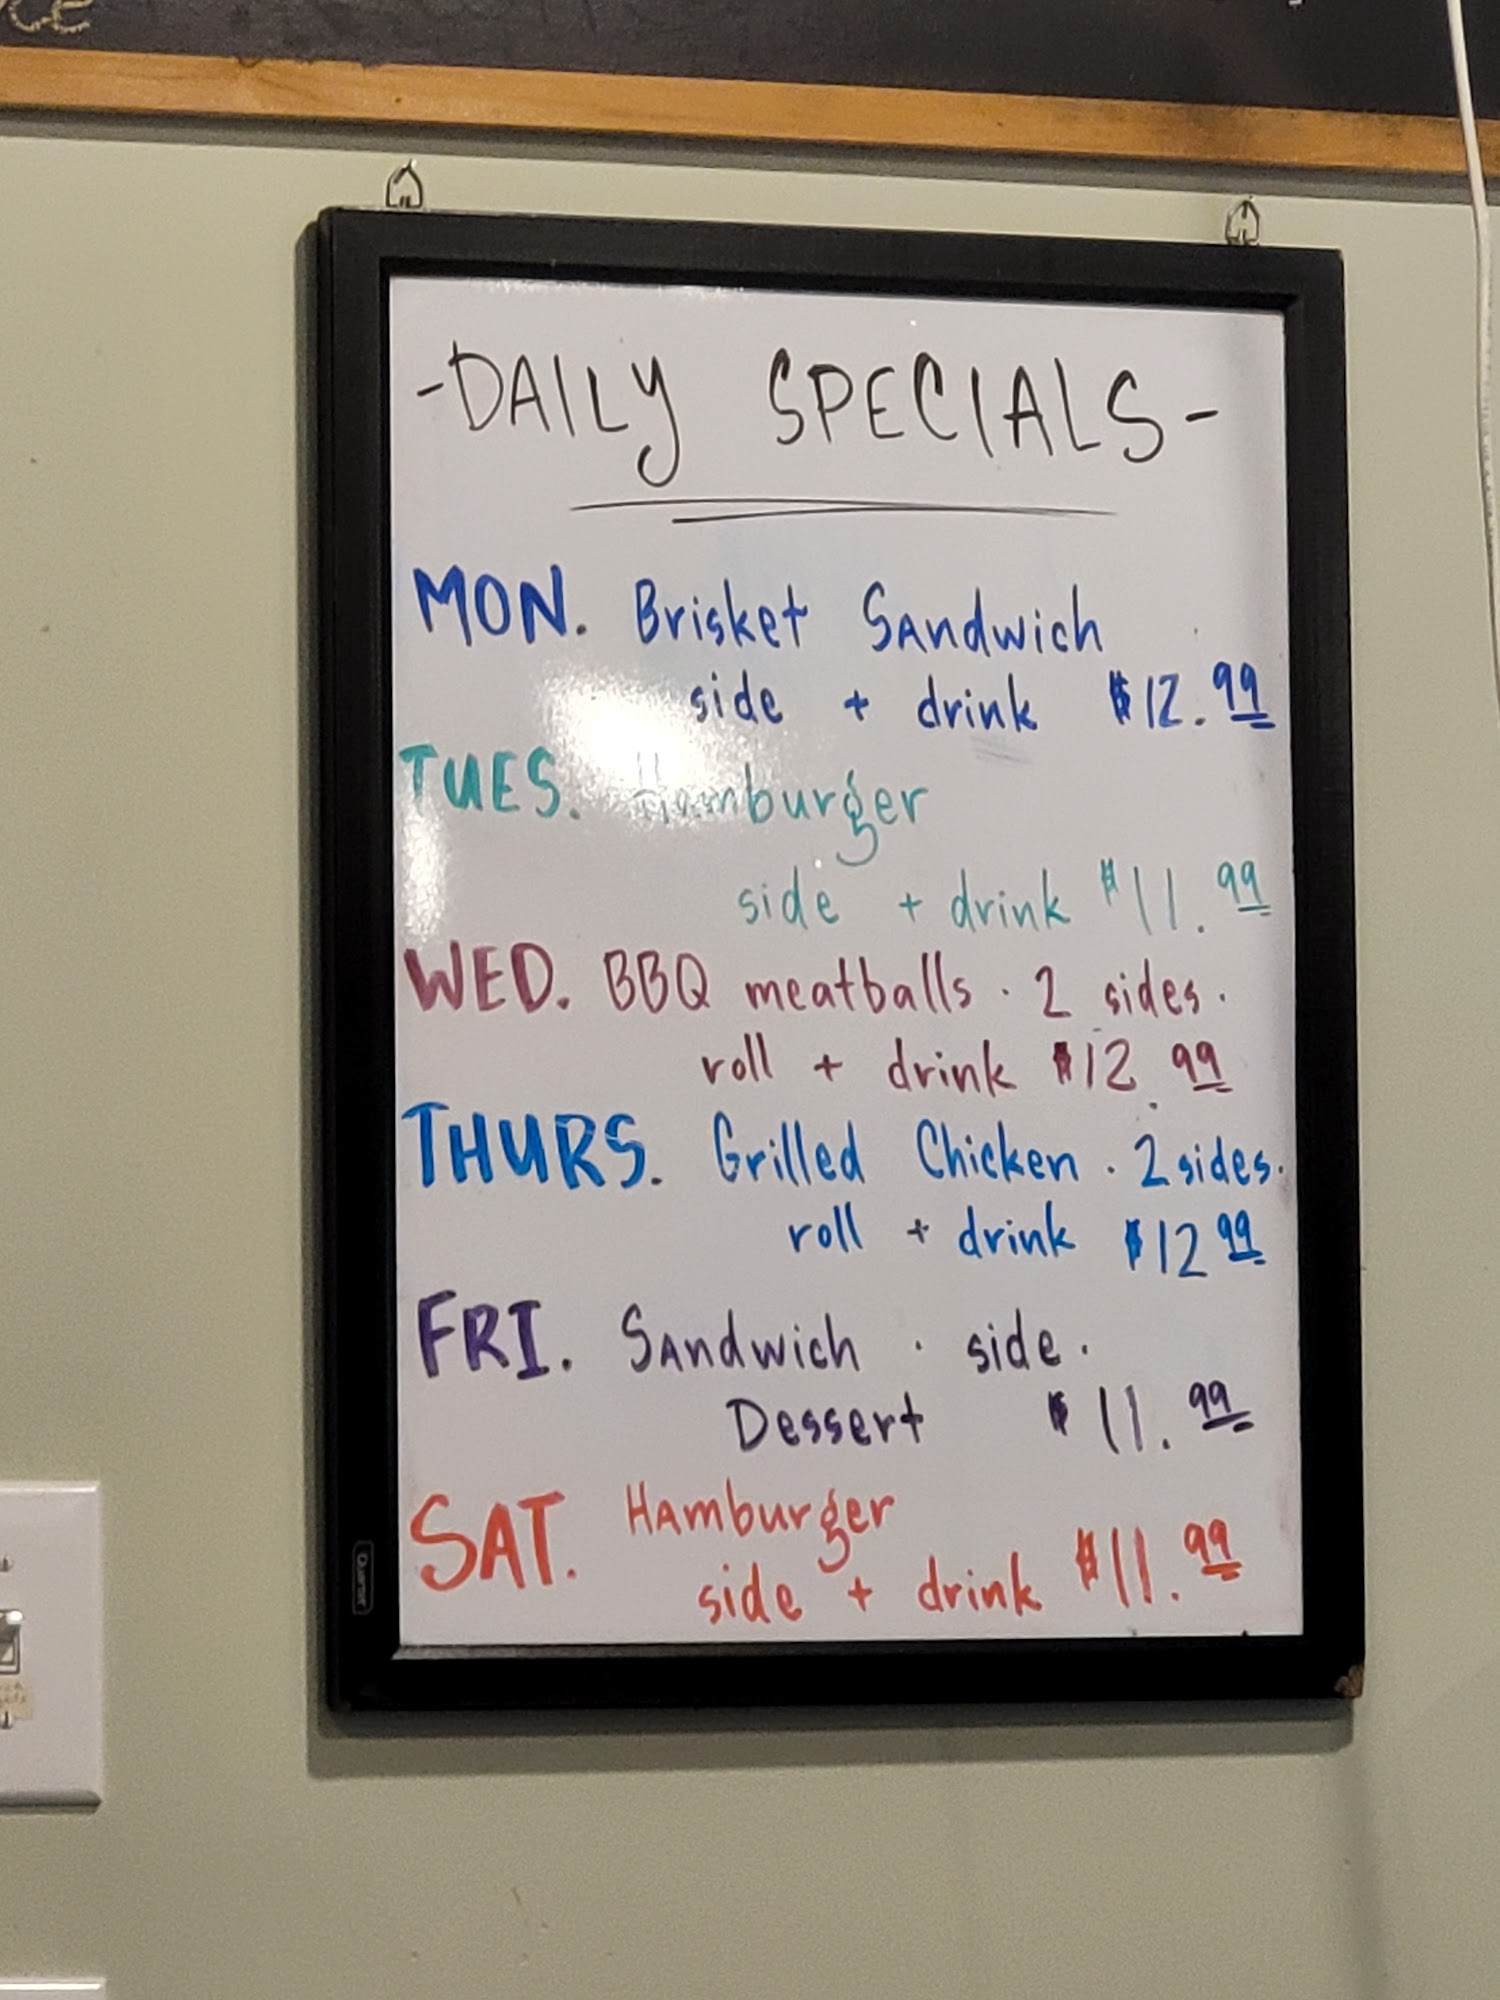 -DAILY SPECIALS-
MON. Brisket Sandwich
side + drink $12.99
TUES. Hamburger
side + drink $11.99
WED. BBQ meatballs · 2 sides ·
roll + drink $12.99
THURS. Grilled Chicken · 2 sides ·
roll + drink $12 99
FRI. Sandwich · side ·
Dessert $11.99
SAT. Hamburger
side + drink $11.99
Quartet